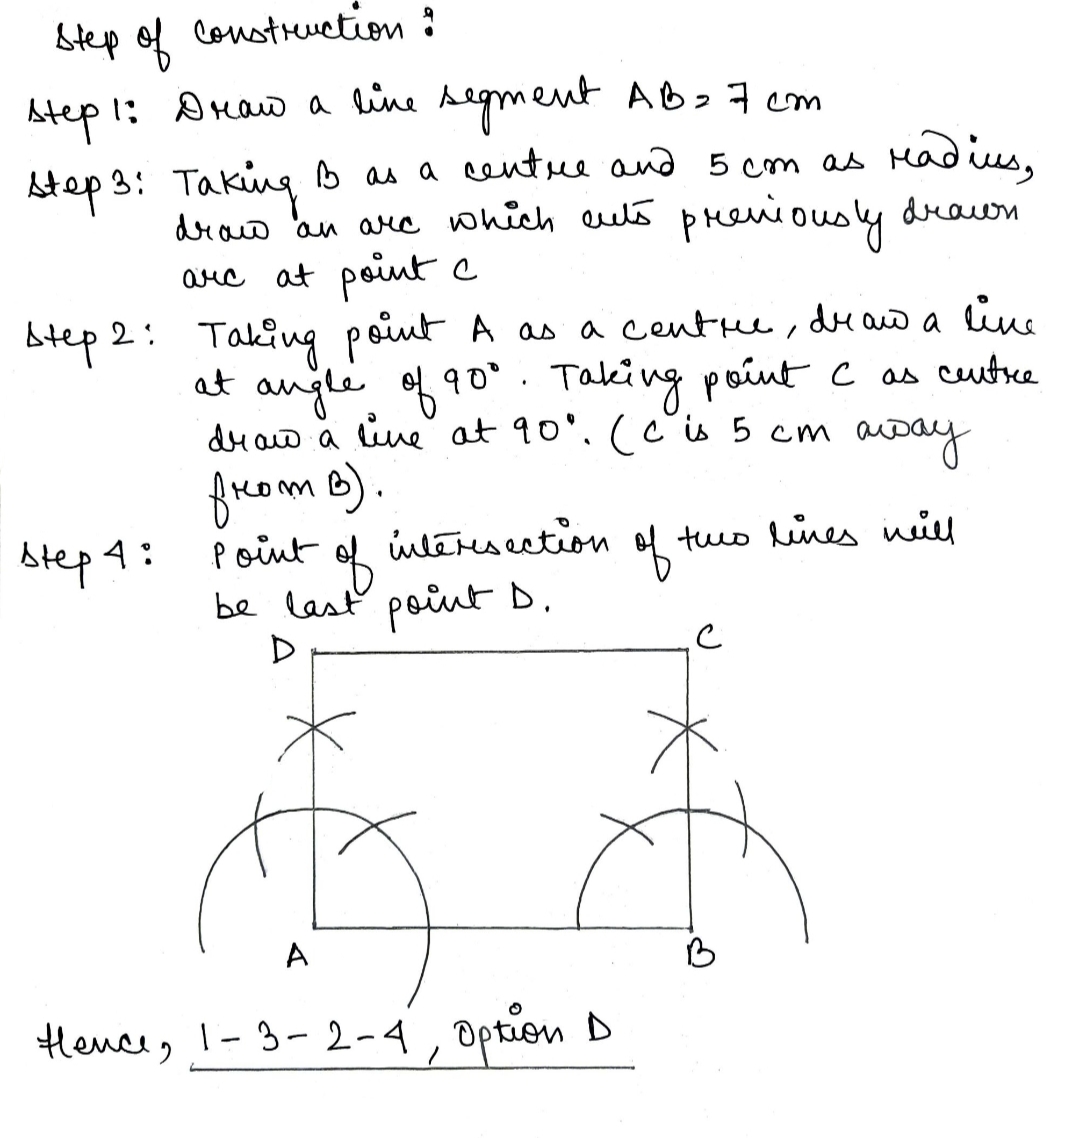 Step of Construction :
Step 1: Draw a line segment AB = 7 cm
Step 3: Taking B as a centre and 5 cm as radius,
draw an arc which cuts previously drawn
arc at point C
Step 2: Taking point A as a centre, draw a line
at angle of 90°. Taking point C as centre
draw a line at 90°. (C is 5 cm away
from B).
Step 4: Point of intersection of two lines will
be last point D.
D C
A B
Hence, 1-3-2-4, Option D